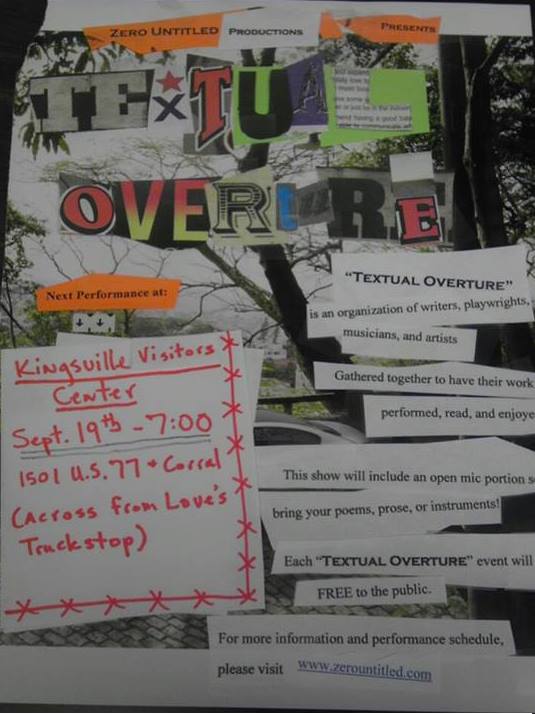 ZERO UNTITLED PRODUCTIONS PRESENTS
TEXTUAL
OVERTURE
Next Performance at:
Kingsville Visitors
Center
Sept. 19th - 7:00
1501 U.S. 77 + Corral
(Across from Love's
Truckstop)
"TEXTUAL OVERTURE"
is an organization of writers, playwrights,
musicians, and artists
Gathered together to have their work
performed, read, and enjoye
This show will include an open mic portion s
bring your poems, prose, or instruments!
Each "TEXTUAL OVERTURE" event will
FREE to the public.
For more information and performance schedule,
please visit www.zerountitled.com